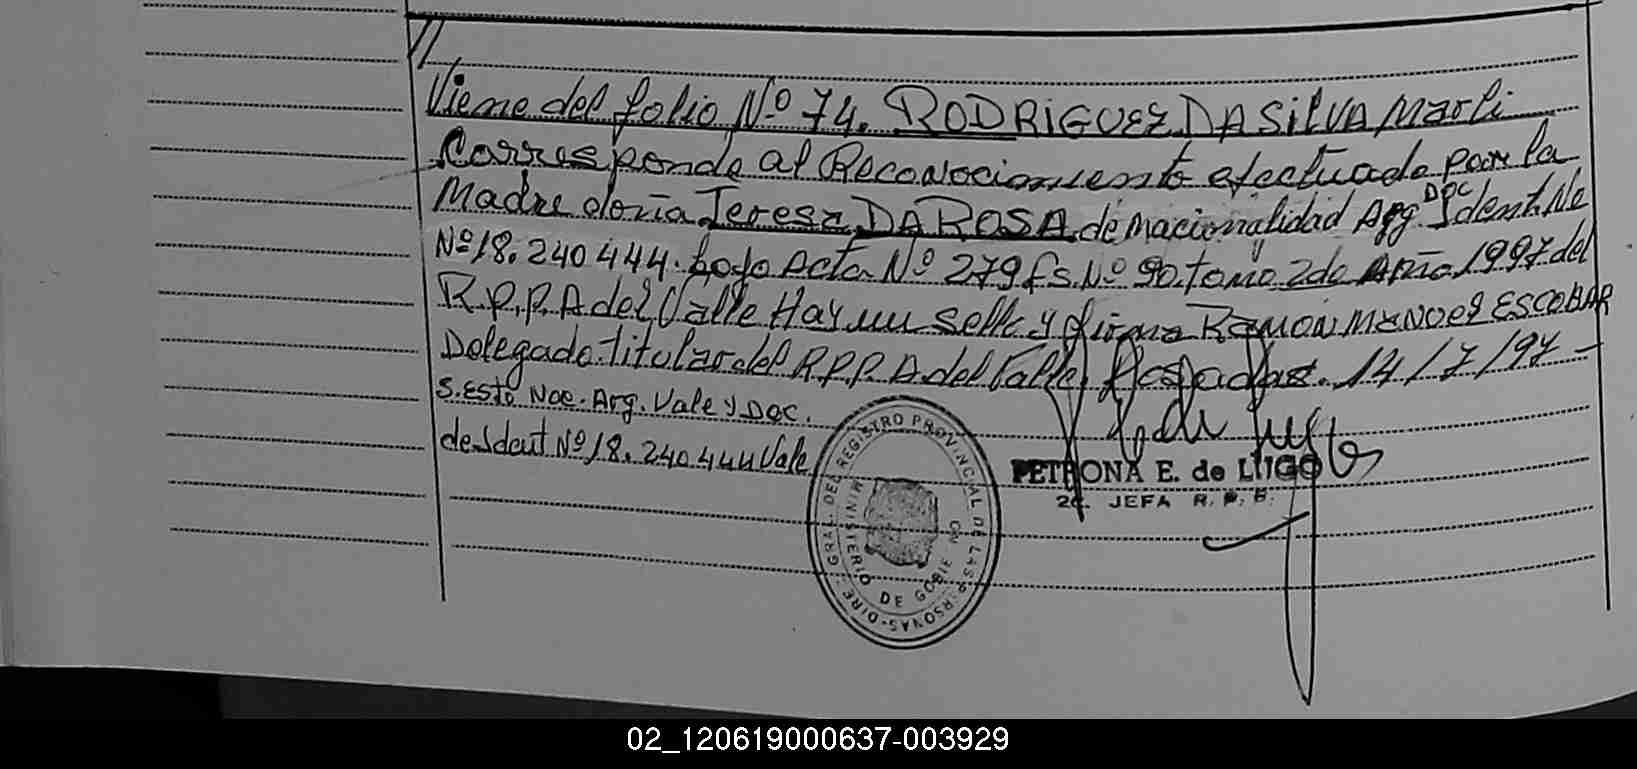 //
Viene del folio Nº 74. RODRIGUEZ DA SILVA Marli
Corresponde al Reconocimiento efectuado por la
Madre doña Teresa DA ROSA de nacionalidad Arg. Doc Ident. Nº
Nº 18.240444. bajo Acta Nº 279 fs. Nº 90. tomo 2do Año 1997 del
R.P.P. A del Valle Hay un sello y firma Ramon Manoel ESCOBAR
Delegado titular del R.P.P. A del Valle. Posadas. 14/7/97 -
S. Esto Noc. Arg. Vale y Doc.
de Ident Nº 18.240444 Vale
PETRONA E. de LUGO
2a. JEFA R. P. P.
DIRE GRAL DEL REGISTRO PROVINCIAL DE LAS PERSONAS
MINISTERIO DE GOBIE
02_120619000637-003929